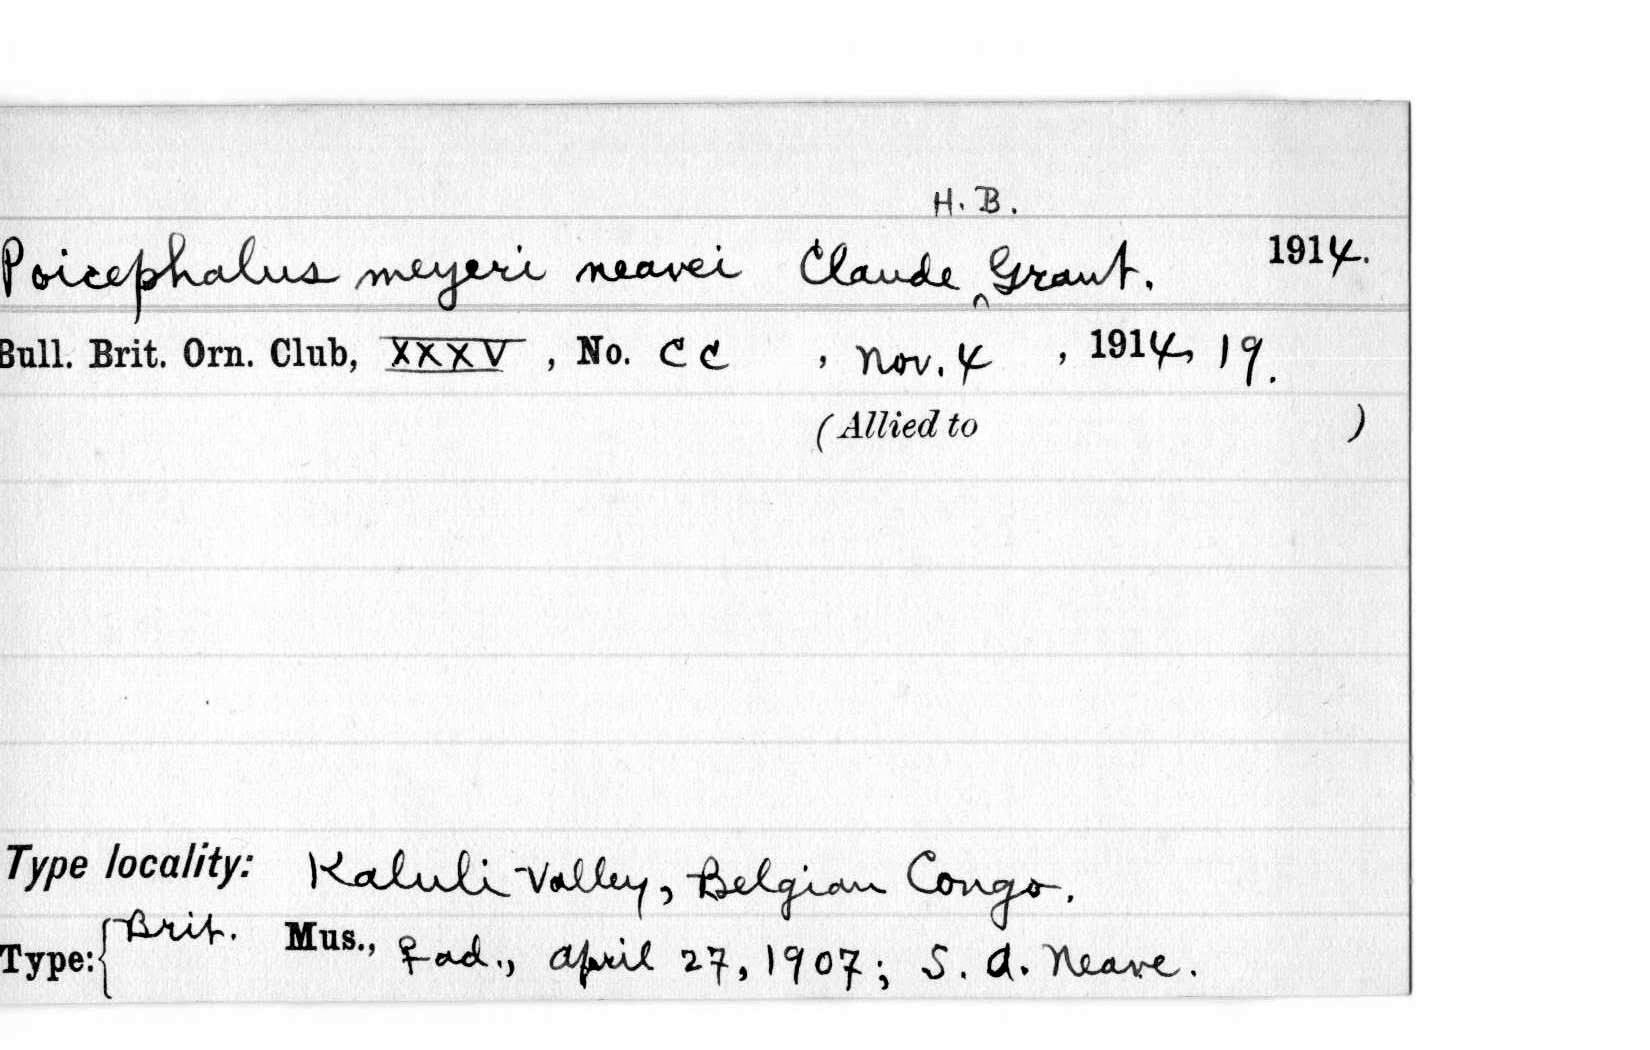 H. B.
Poicephalus meyeri neavei Claude ^ Grant. 1914.
Bull. Brit. Orn. Club, XXXV, No. CC, Nov. 4, 1914, 19.
(Allied to )
Type locality: Kaluli Valley, Belgian Congo.
Type: { Brit. Mus., ♀ ad., April 27, 1907; S. A. Neave.